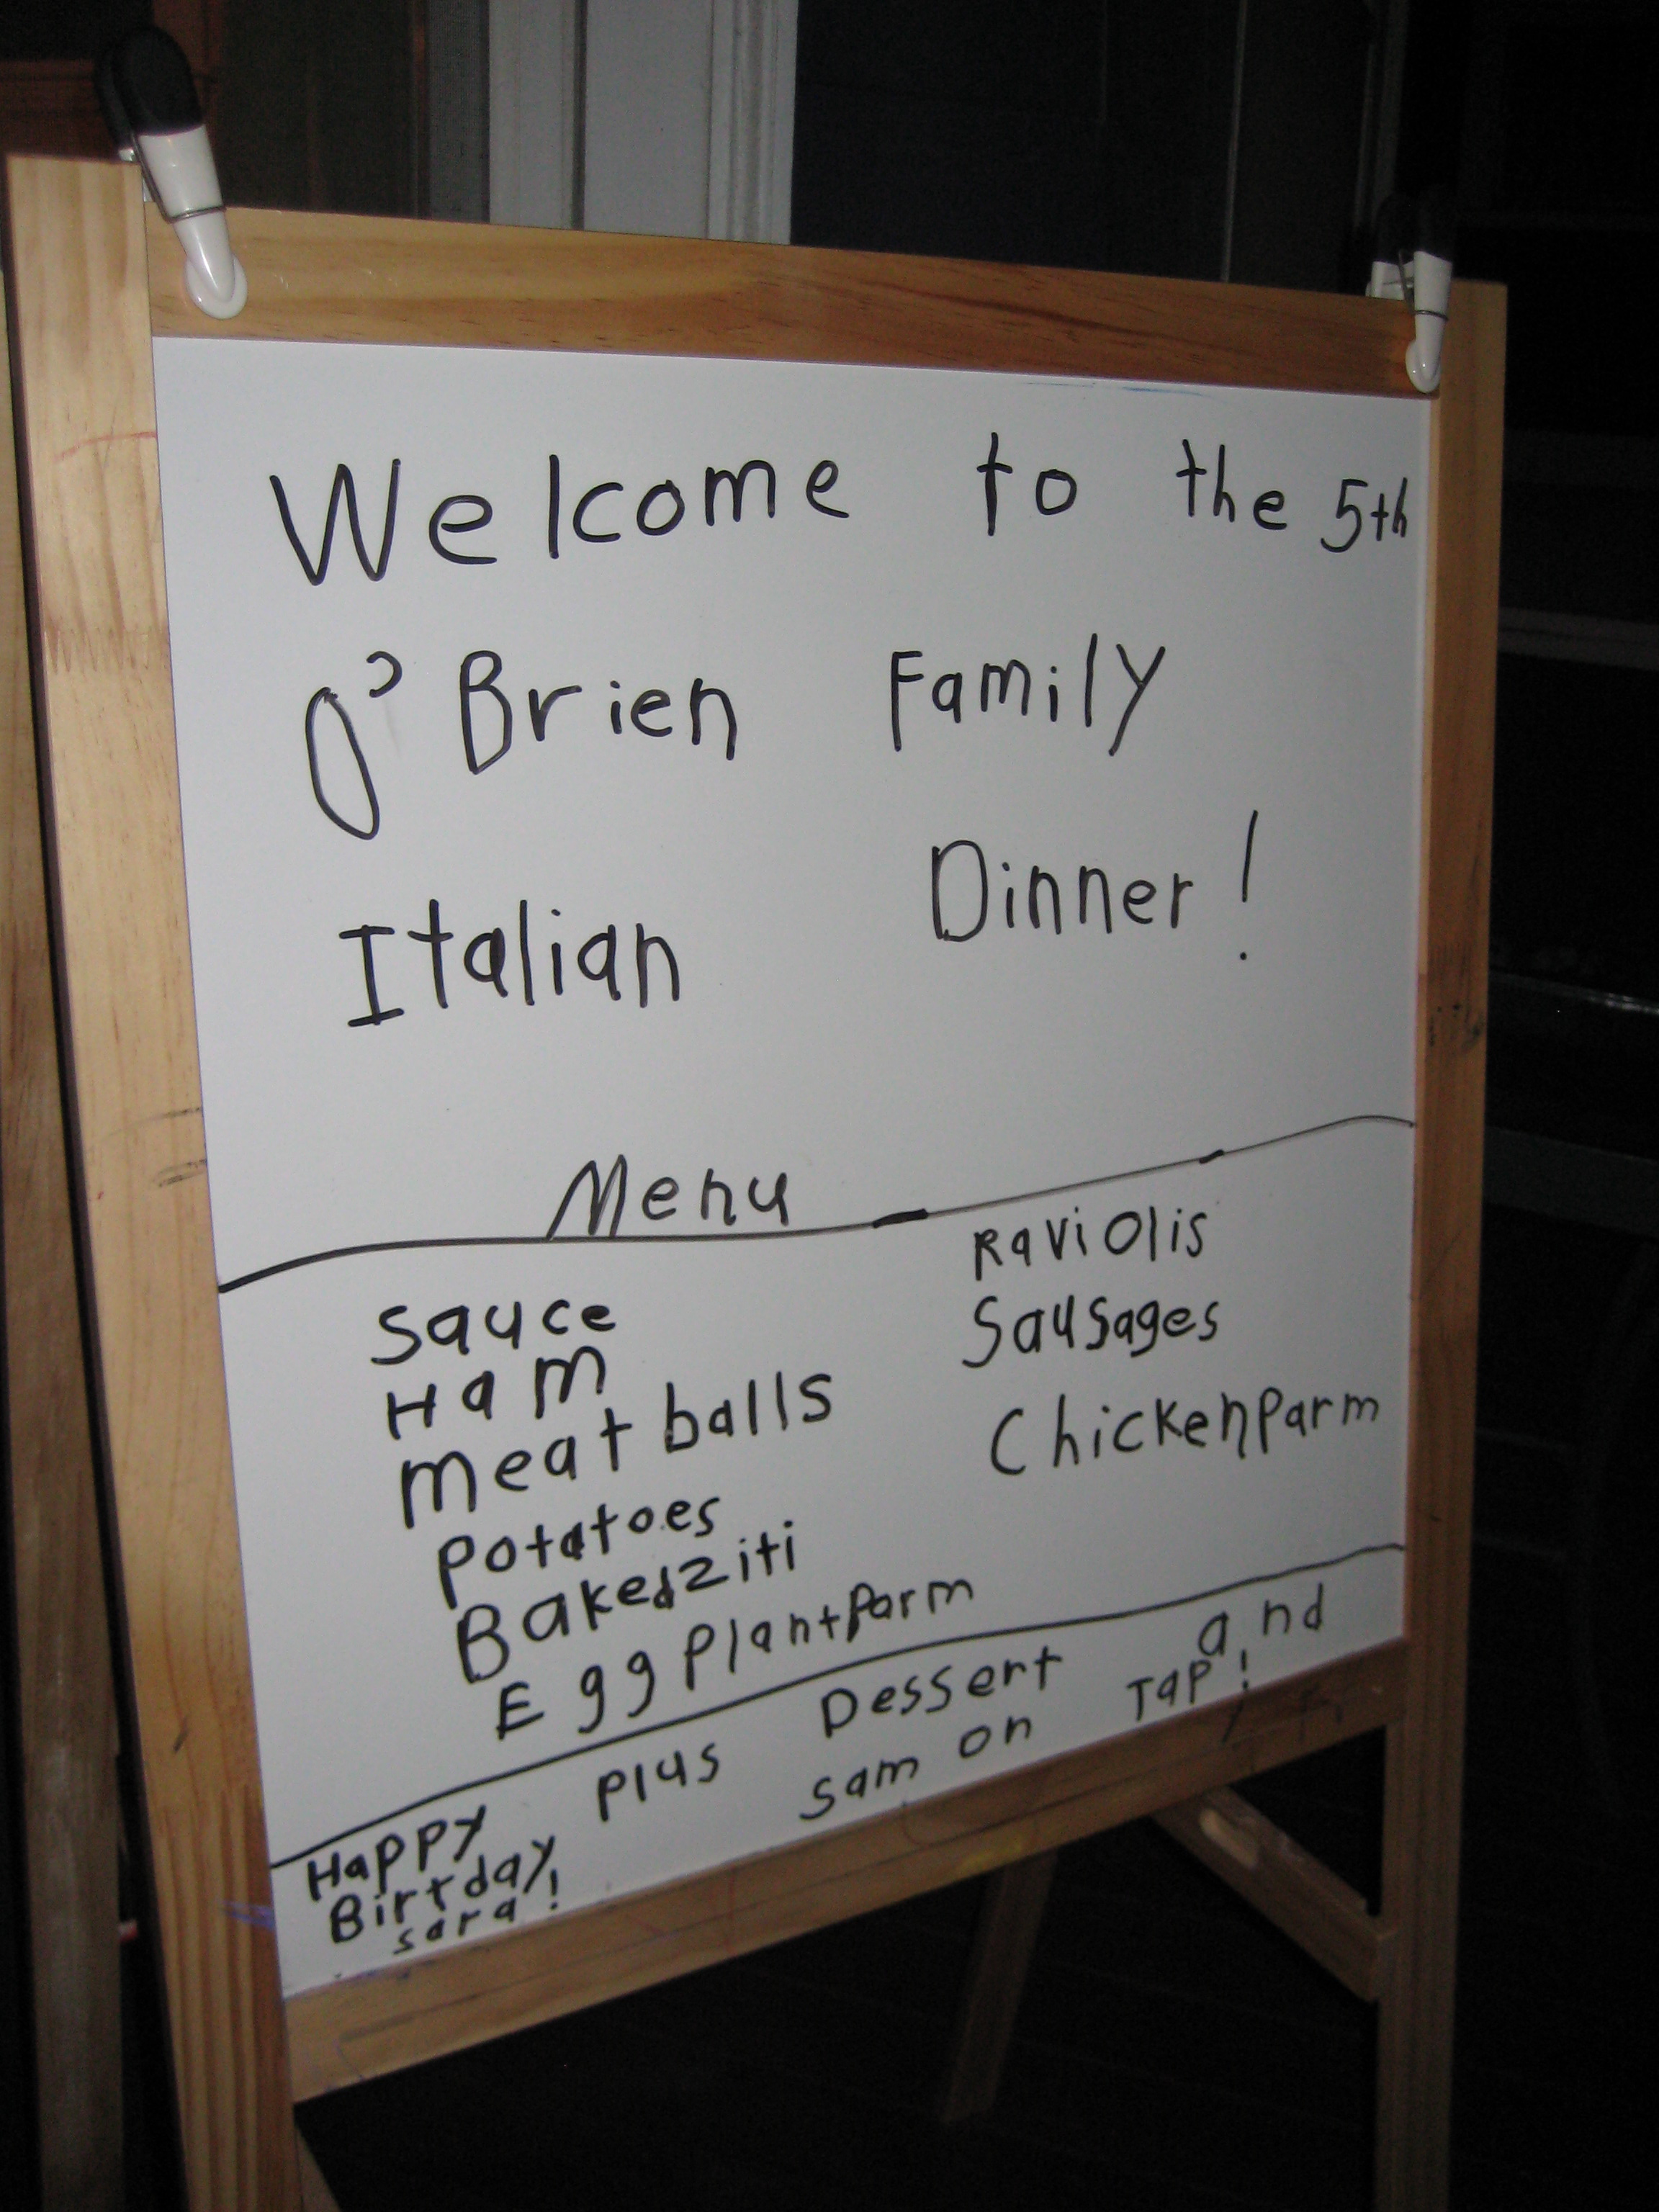 Welcome to the 5th
O'Brien Family
Italian Dinner!
Menu
Sauce
Ham
meat balls
Potatoes
Baked ziti
Egg Plant Parm
Raviolis
Sausages
Chicken Parm
Plus Dessert and
Sam on Tap!
Happy
Birtday
sara!